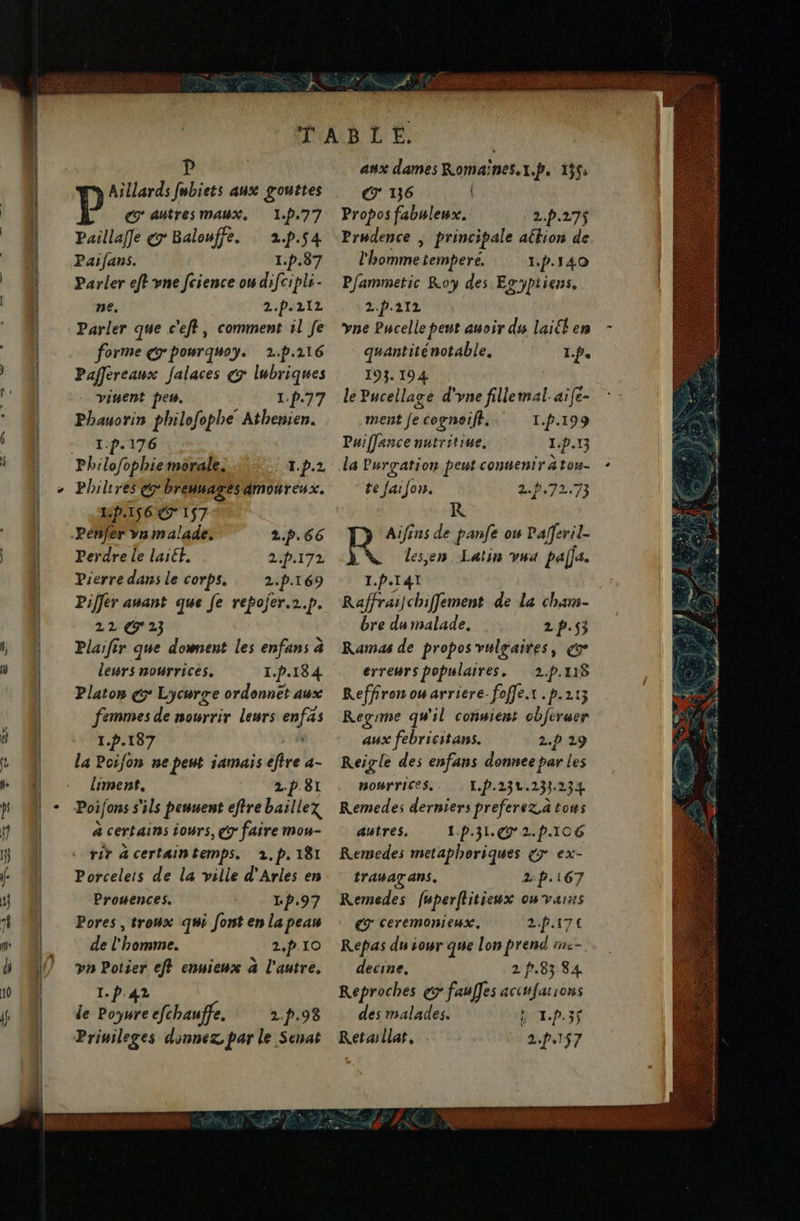 TABLE.
P
PAillards ſubiets aux gouttes
& autres maux, 1.p.77
Paillaſſe & Balouffe. 2.p.54
Paiſans. 1.p.87
Parler eſt vne ſcience ou diſcipli-
ne. 2.p.212
Parler que c'eſt, comment il ſe
forme & pourquoy. 2.p.216
Paſſereaux ſalaces & lubriques
viuent peu. 1.p.77
Phauorin philoſophe Athenien.
1.p.176
Philoſophie morale. 1.p.2
Philtres & breuuages amoureux.
1.p.156 & 157
Penſer vn malade. 2.p.66
Perdre le laict. 2.p.172
Pierre dans le corps, 2.p.169
Piſſer auant que ſe repoſer.2.p.
22 & 23
Plaiſir que donnent les enfans à
leurs nourrices. 1.p.184
Platon & Lycurge ordonnēt aux
femmes de nourrir leurs enfās
1.p.187
la Poiſon ne peut iamais eſtre a-
liment, 2.p.81
Poiſons s'ils peuuent eſtre baillez
à certains iours, & faire mou-
rir à certain temps. 2.p.181
Porcelets de la ville d'Arles en
Prouences. 1.p.97
Pores, troux qui ſont en la peau
de l'homme. 2.p 10
vn Potier eſt enuieux à l'autre.
1.p.42
le Poyure eſchauffe. 2.p.98
Priuileges donnez par le Senat
aux dames Romaines. 1.p. 135.
& 136
Propos fabuleux. 2.p.275
Prudence, principale action de
l'homme temperé. 1.p.140
Pſammetic Roy des Egyptiens.
2.p.212
vne Pucelle peut auoir du laict en
quantité notable. 1.p.
193.194
le Pucellage d'vne fille mal-aiſé-
ment ſe cognoiſt. 1.p.199
Puiſſance nutritiue. 1.p.13
la Purgation peut conuenir à tou-
te ſaiſon. 2.p.72.73
R
RAiſins de panſe ou Paſſeril-
les, en Latin vua paſſa.
1.p.141
Raffraiſchiſſement de la cham-
bre du malade. 2.p.53
Ramas de propos vulgaires, &
erreurs populaires. 2.p.118
Reffiron ou arriere-foſſe.1.p.213
Regime qu'il conuient obſeruer
aux febricitans. 2.p 29
Reigle des enfans donnee par les
nourrices. 1.p.231.233.234
Remedes derniers preferez à tous
autres. 1.p.31.& 2.p.106
Remedes metaphoriques & ex-
trauagans. 2.p.167
Remedes ſuperſtitieux ou vains
& ceremonieux. 2.p.171
Repas du iour que lon prend me-
decine. 2.p.83 84
Reproches & fauſſes accuſations
des malades. 1.p.35
Retaillat. 2.p.157